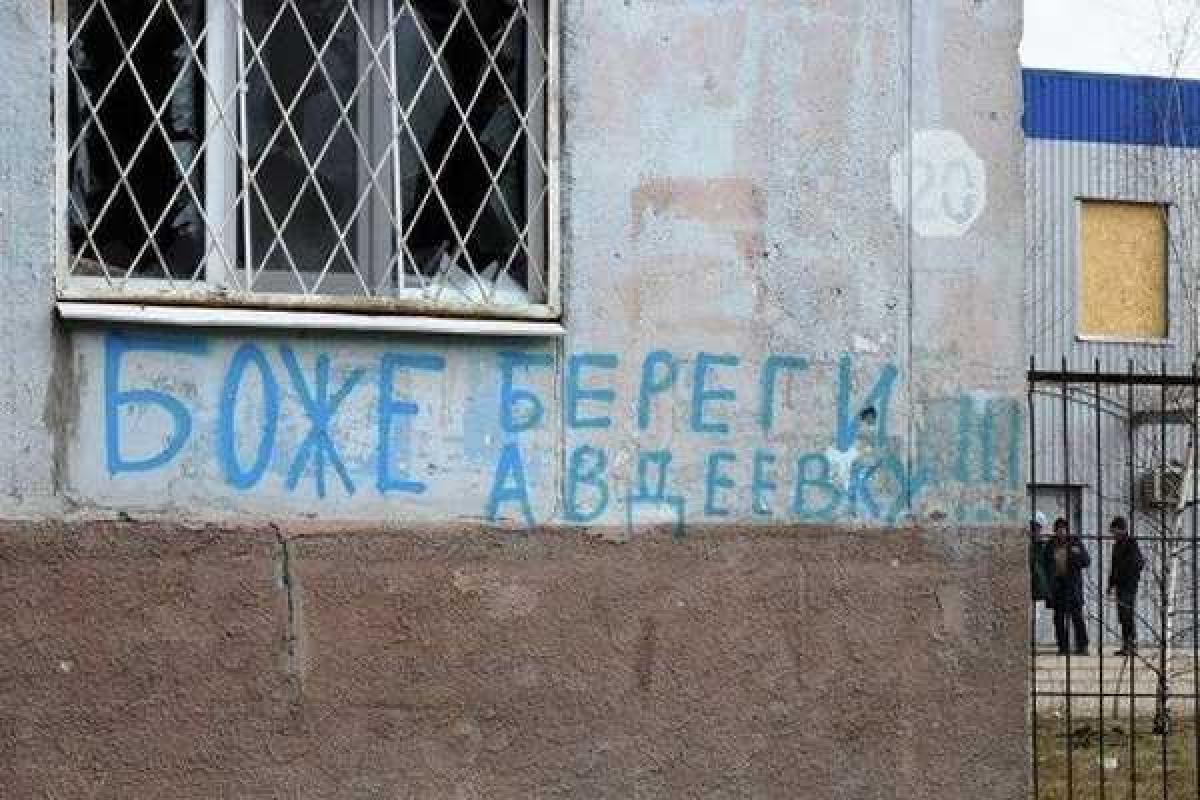 20
БОЖЕ БЕРЕГИ
АВДЕЕВКУ !!!